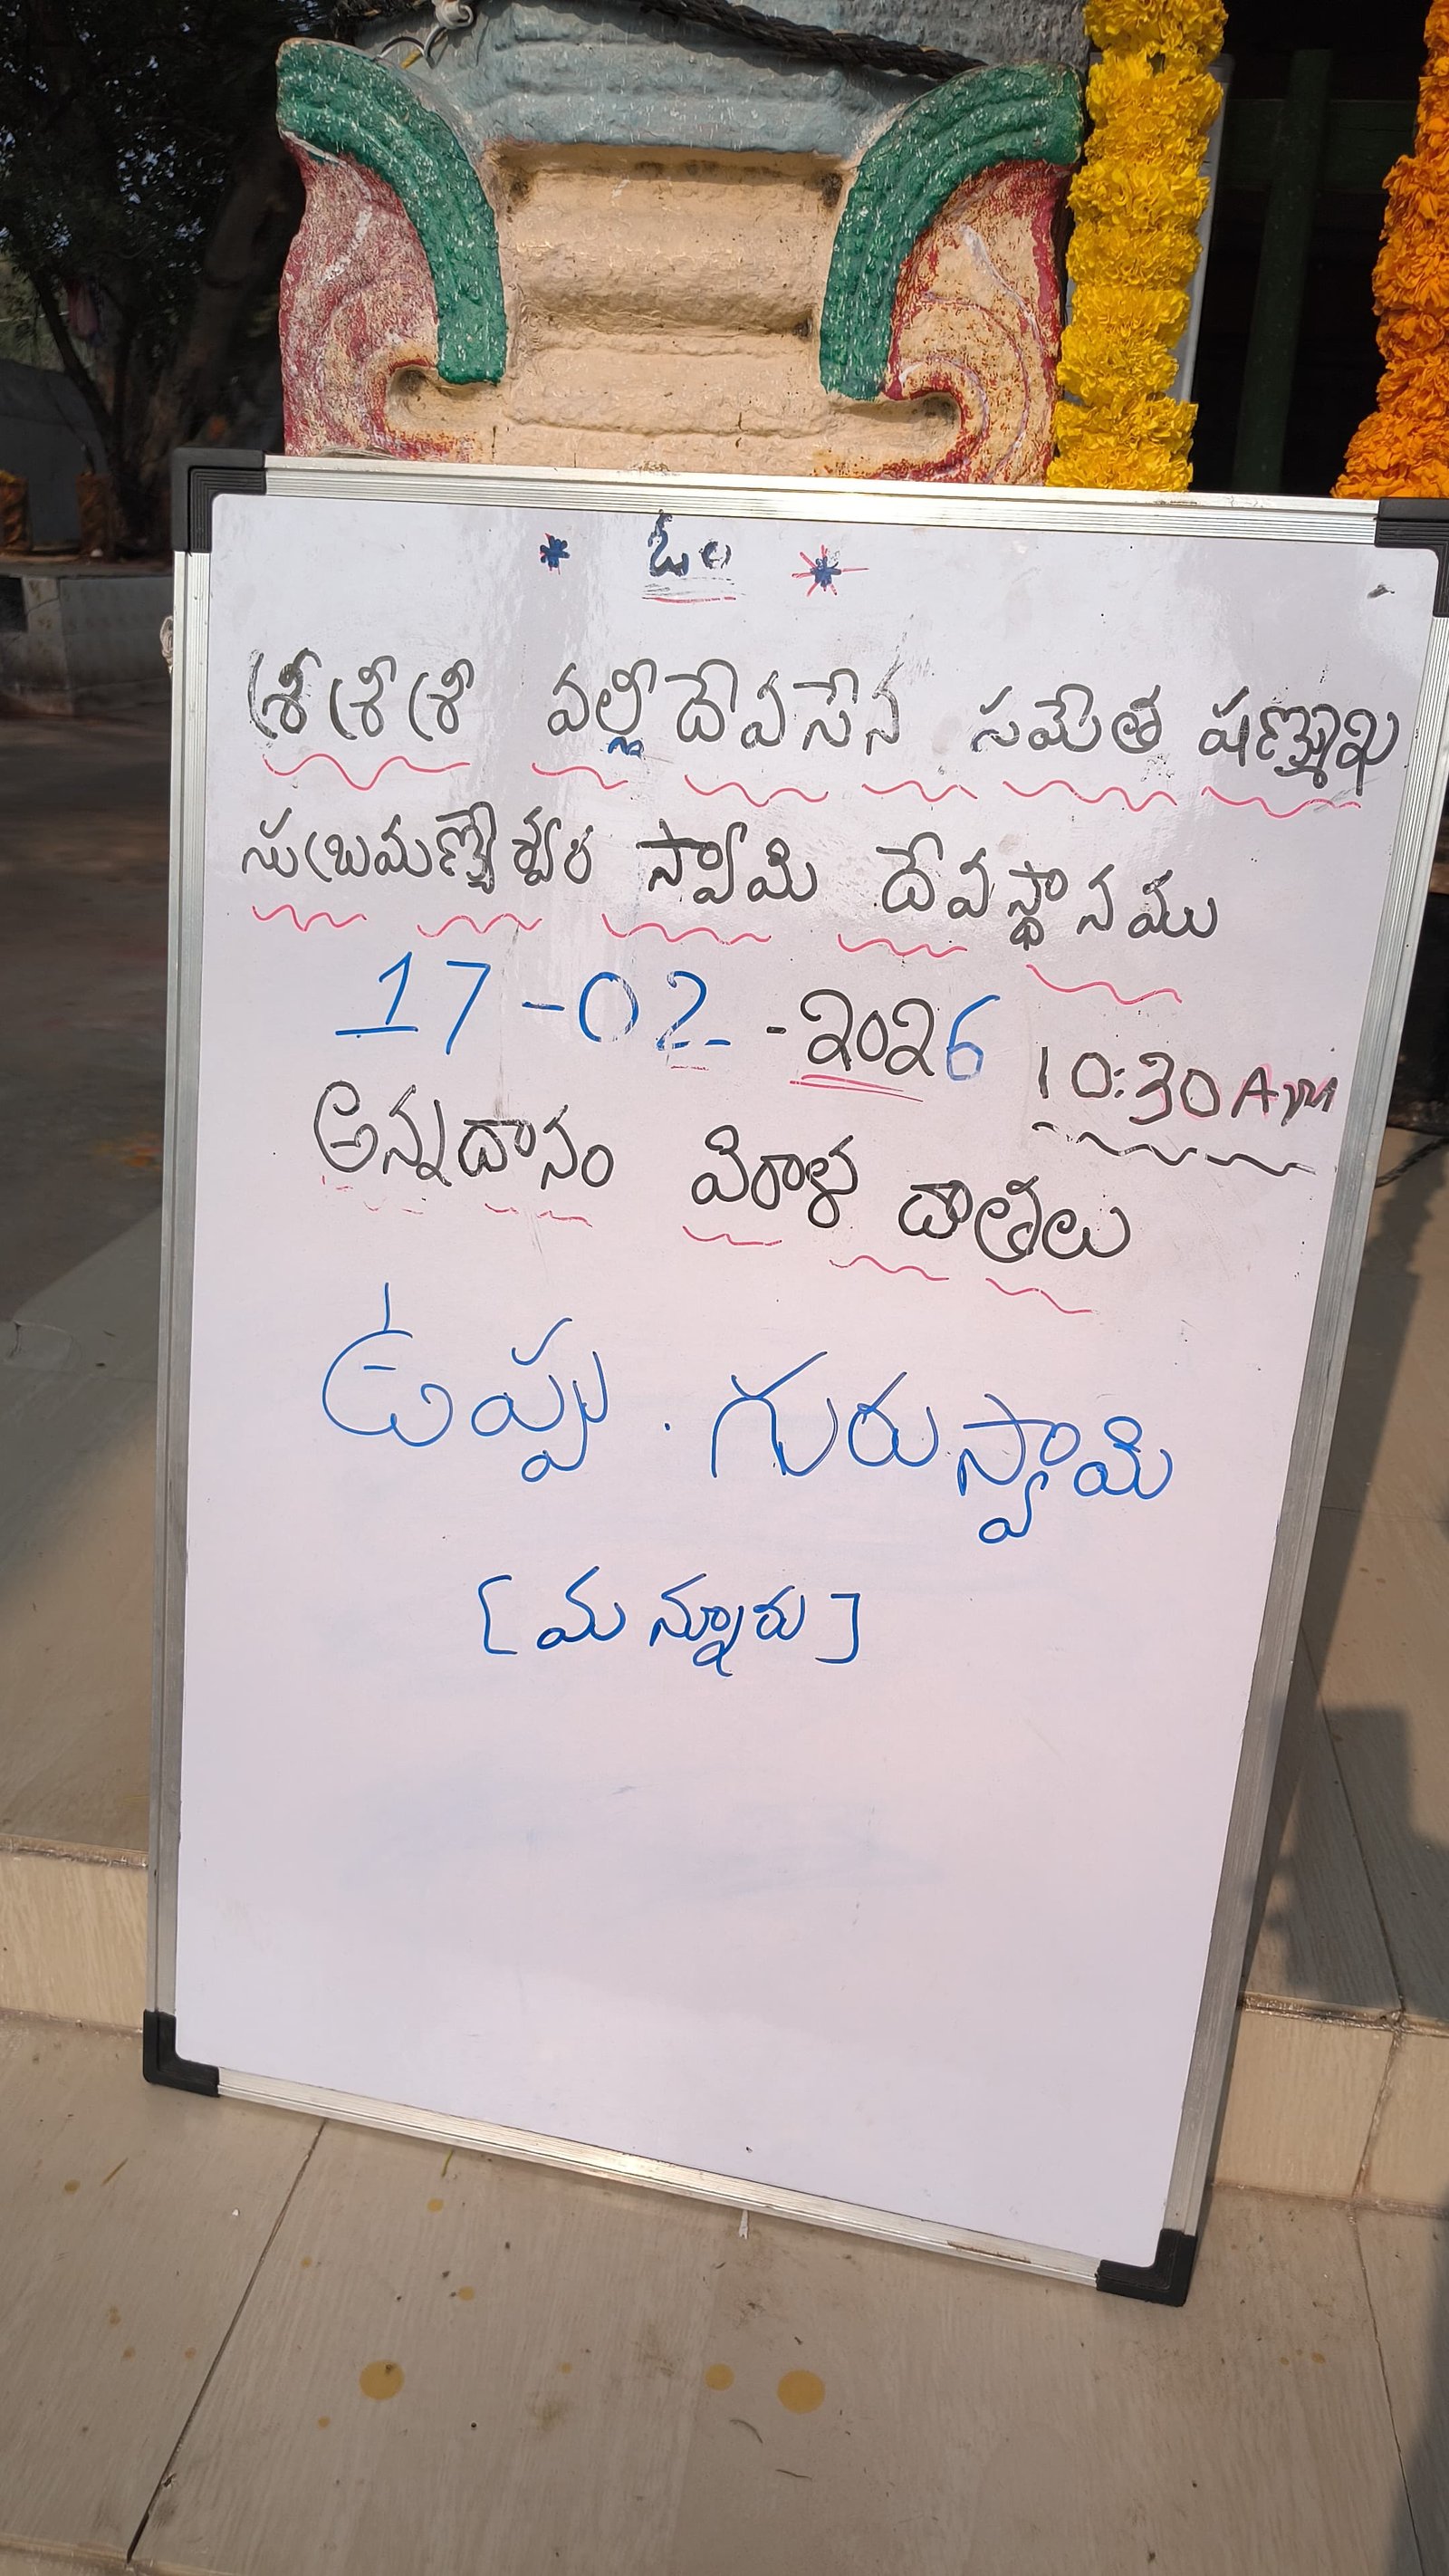 * ఓం *
శ్రీ శ్రీ శ్రీ వల్లీదేవసేన సమేత షణ్ముఖ
సుబ్రమణ్యేశ్వర స్వామి దేవస్థానము
17-02-2026 10:30AM
అన్నదానం విరాళ దాతలు
ఉప్పు. గురుస్వామి
[మన్నూరు]